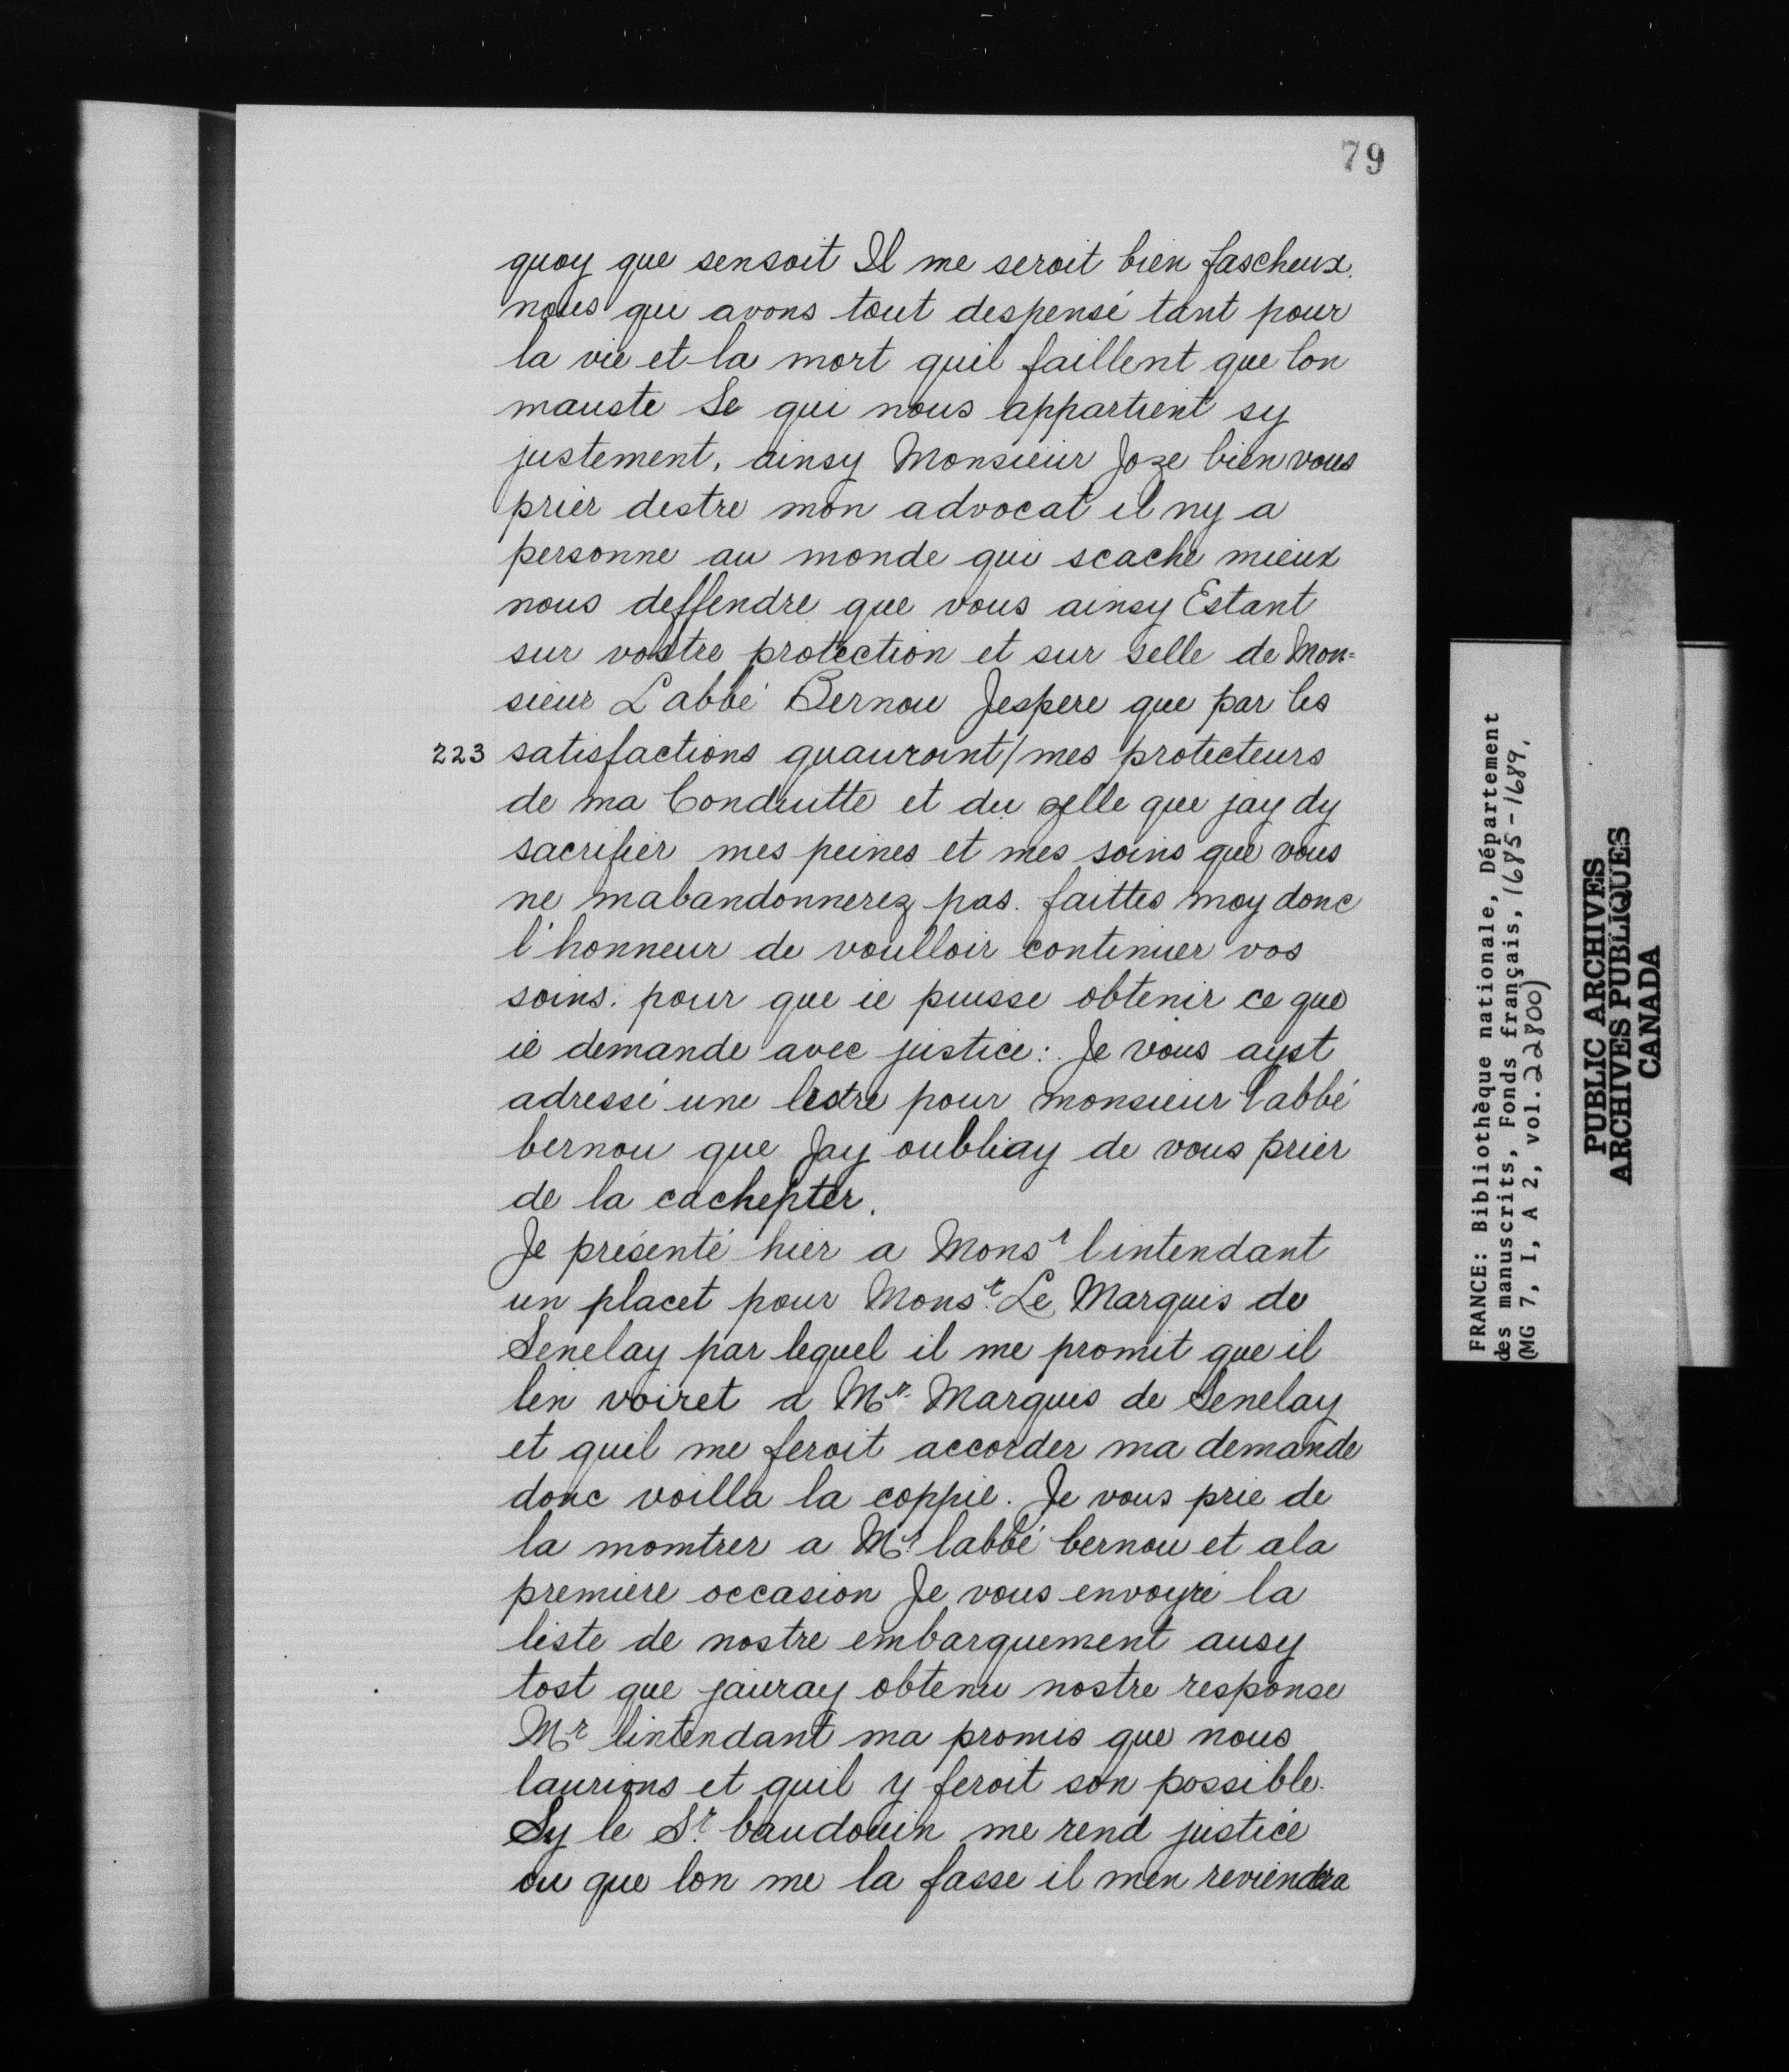 79
quoy que sensoit Il me seroit bien fascheux.
nous qui avons tout despensé tant pour
la vie et la mort quil faillent que lon
mauste Se qui nous appartient sy
justement, ainsy Monsieur Joze bien vous
prier destre mon advocat il ny a
personne au monde qui scache mieux
nous deffendre que vous ainsy Estant
sur vostre protection et sur selle de Mon=
sieur L'abbé Bernou Jespere que par les
223 satisfactions quauront / mes protecteurs
de ma Conduitte et du zelle que jay dy
sacrifier mes peines et mes soins que vous
ne mabandonnerez pas. faittes moy donc
l'honneur de voulloir continuer vos
soins: pour que ie puisse obtenir ce que
ie demande avec justice: Je vous ayst
adressé une lestre pour monsieur l'abbé
bernou que Jay oubliay de vous prier
de la cachepter.
Je présenté hier a Monsr lintendant
un placet pour Monsr. Le Marquis de
Senelay par lequel il me promit que il
len voiret a Mr. Marquis de Senelay
et quil me feroit accorder ma demande
donc voilla la coppie. Je vous prie de
la momtrer a Mr. labbé bernou et ala
premiere occasion Je vous envoyré la
liste de nostre embarquement ausy
tost que jauray obtenu nostre response
Mr lintendant ma promis que nous
laurions et quil y feroit son possible.
Sy le Sr. baudouin me rend justice
ou que lon me la fasse il men reviendra
FRANCE: Bibliothèque nationale, Département
des manuscrits, Fonds français, 1685-1689.
(MG 7, I, A 2, vol. 22800)
PUBLIC ARCHIVES
ARCHIVES PUBLIQUES
CANADA